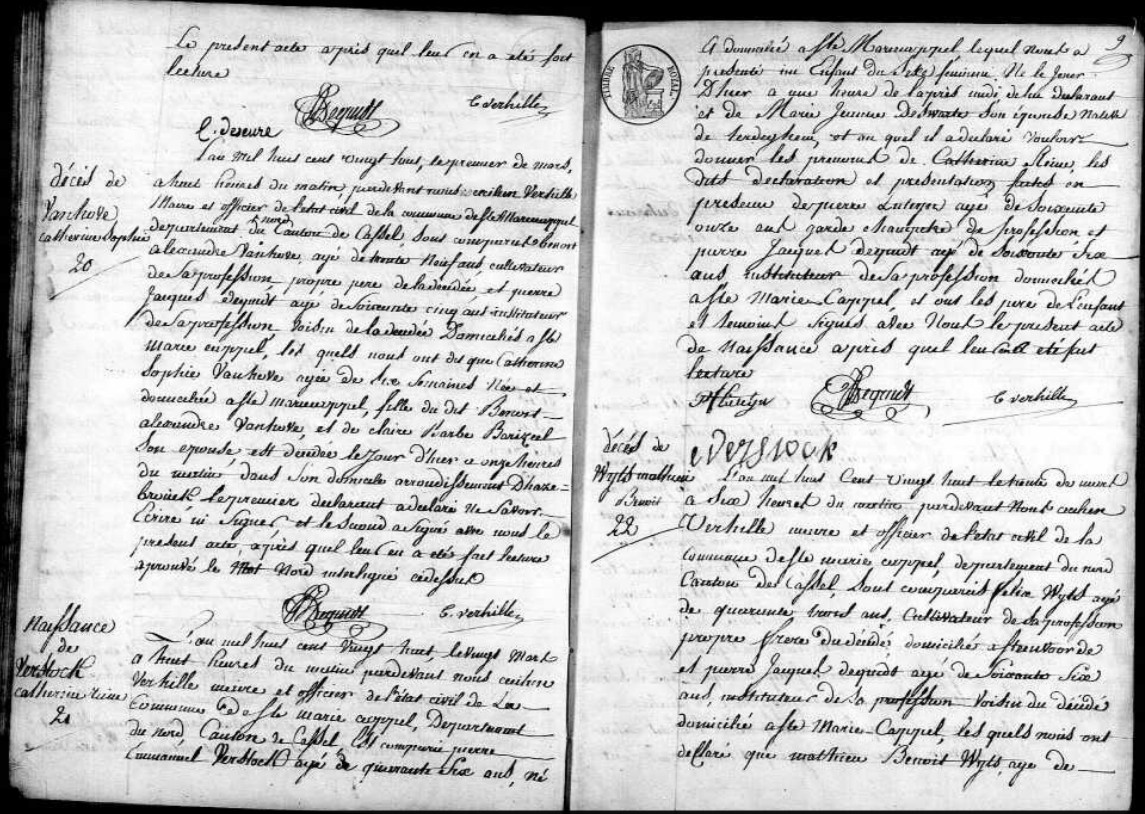 Le present acte après quil leur en a eté fait
lecture
Dequidt C verhille
C. deseure
décès de
Vanhove
Catherine Sophie
20
L'an mil huit cent vingt huit, le premier de mars,
a huit heures du matin, pardevant nous Verhille
Maire et officier de l'etat civil de la commune de Ste Mariecappel
departement du nord Canton de Cassel, sont comparus Benoit
alexandre Vanhove, agé de trente Neuf ans, cultivateur
de sa profession, propre pere de la décédée, et pierre
Jacques dequidt agé de soixante cinq ans instituteur
de sa profession, voisin de la décédée Domiciliés a Ste
Marie cappel, les quels nous ont dit que Catherine
Sophie Vanhove agée de six Semaines Née et
domiciliée a Ste mariecappel, fille du dit Benoit
alexandre Vanhove, et de claire Barbe
Son epouse est décédée le jour d'hier a onze heures
du matin dans son domicile arrondissement D'haze-
brouck le premier declarant a declaré Ne Savoir
Ecrire ni Signer et le Second a Signé avec nous le
present acte, après quil leur en a eté fait lecture
aprouvé le Mot Nord interligne cidessus
Dequidt C verhille
Naissance
de
Verstock
Catherine reine
21
L'an mil huit cent vingt huit, le vingt Mars
a huit heures du matin pardevant nous
Verhille maire et officier de l'état civil de La
Commune de Ste marie cappel, Departement
du nord, Canton de Cassel, Est comparu pierre
Emmanuel Verstock agé de quarante Six ans, né
9
TIMBRE ROYAL
& domicilié a Ste Mariecappel lequel Nous a
presenté un Enfant du Sexe féminin Né le Jour
D'hier a une heure de l'après midi de lui declarant
et de Marie Jeanne Deswarte Son épouse Native
de terdeghem, et au quel il a declaré vouloir
donner les prenoms de Catherine Reine, les
dits declaration et presentation faites en
presence de pierre agé de Soixante
onze ans garde champetre de profession et
pierre Jacques dequidt agé de Soixante Six
ans instituteur de sa profession domiciliés
a Ste Marie Cappel et ont les pere de l'enfant
et temoins Signés avec Nous le present acte
de Naissance après quil leur en a eté fait
lecture
Dequidt C verhille
Verstock
décès de
Wyts mathieu
Benoit
22
L'an mil huit Cent vingt huit le trente de mars
a Six heures du matin pardevant Nous
Verhille maire et officier de l'etat civil de la
Commune de Ste marie cappel, departement du nord
Canton de Cassel, Sont comparus felix Wyts agé
de quarante trois ans, Cultivateur de sa profession
propre frere du décédé, domicilié a Steenvoorde
et pierre Jacques dequidt agé de Soixante Six
ans, instituteur de sa profession voisin du décédé
domicilié a Ste Marie Cappel, les quels nous ont
declaré que mathieu Benoit Wyts, agé de